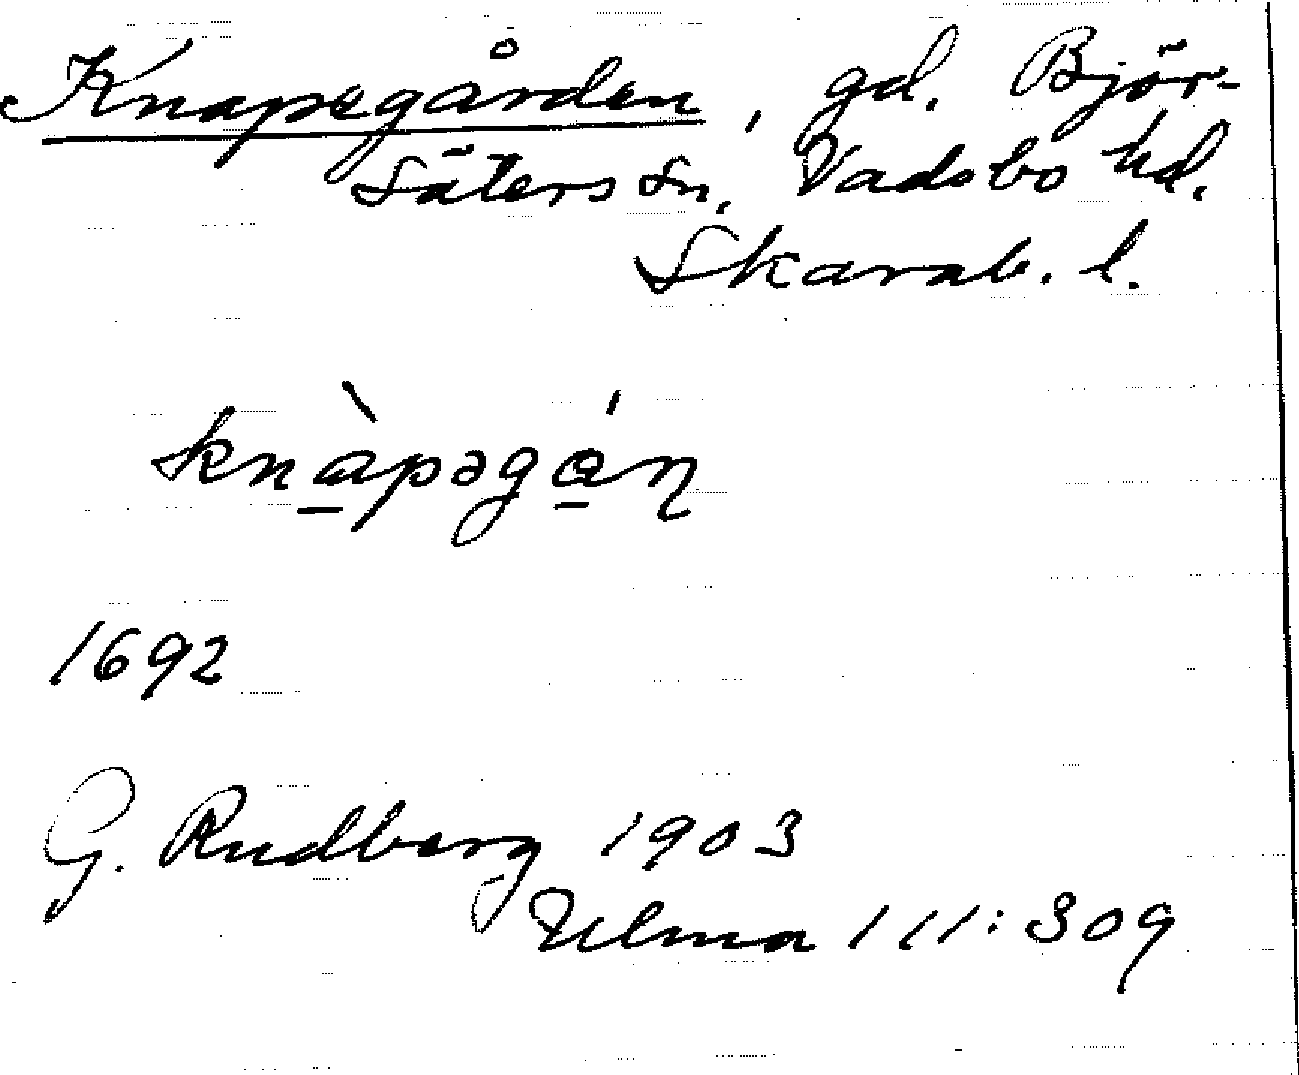 Knapegården, gd. Björ-
säters sn, Vadsbo hd.
Skarab. l.
knàpəgǻɳ
1692
G. Rudberg 1903
Ulma 111:309